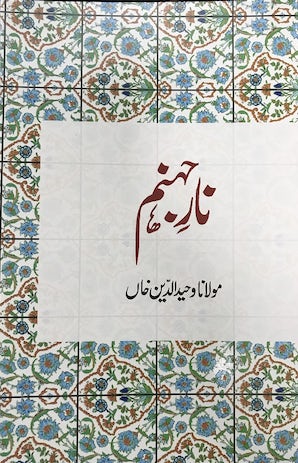 نارِ جہنم
مولانا وحید الدّین خاں